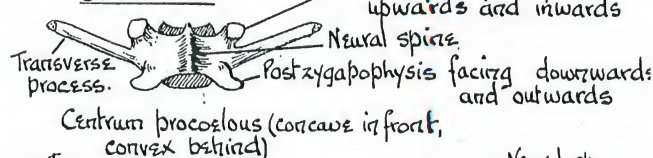 upwards and inwards
Neural spine
Transverse
process.
Postzygapophysis facing downwards
and outwards
Centrum procoelous (concave in front,
convex behind)